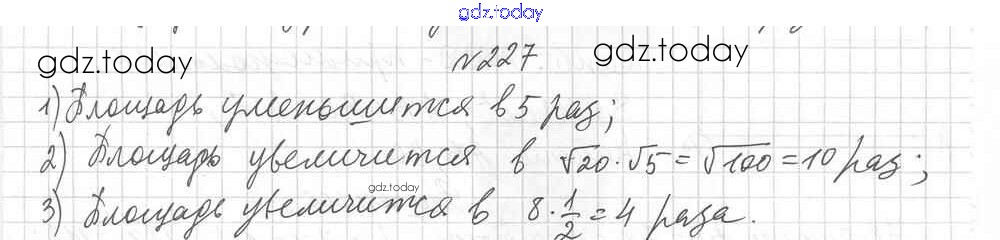 gdz.today
gdz.today №227. gdz.today
1) Площадь уменьшится в 5 раз;
2) Площадь увеличится в √20·√5=√100=10 раз;
gdz.today
3) Площадь увеличится в 8·1/2=4 раза.